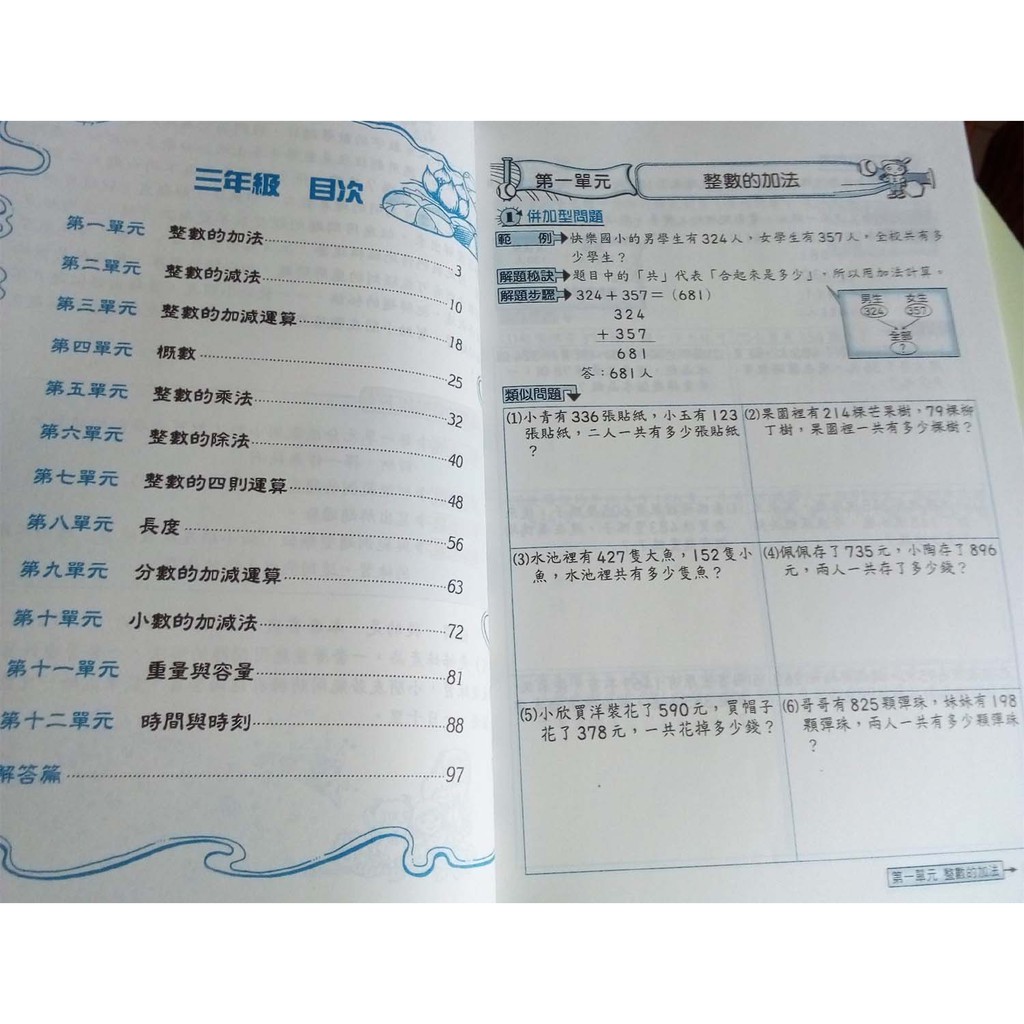 三年級 目次
第一單元 整數的加法 3
第二單元 整數的減法 10
第三單元 整數的加減運算 18
第四單元 概數 25
第五單元 整數的乘法 32
第六單元 整數的除法 40
第七單元 整數的四則運算 48
第八單元 長度 56
第九單元 分數的加減運算 63
第十單元 小數的加減法 72
第十一單元 重量與容量 81
第十二單元 時間與時刻 88
解答篇 97
第一單元 整數的加法
1 併加型問題
範例 快樂國小的男學生有324人，女學生有357人，全校共有多
少學生？
解題秘訣 題目中的「共」代表「合起來是多少」，所以用加法計算。
解題步驟 324＋357＝（681）
324
＋357
681
答：681人
男生 女生
324 357
全部
？
類似問題
(1)小青有336張貼紙，小玉有123
張貼紙，二人一共有多少張貼紙
？
(2)果園裡有214棵芒果樹，79棵柳
丁樹，果園裡一共有多少棵樹？
(3)水池裡有427隻大魚，152隻小
魚，水池裡共有多少隻魚？
(4)佩佩存了735元，小陶存了896
元，兩人一共存了多少錢？
(5)小欣買洋裝花了590元，買帽子
花了378元，一共花掉多少錢？
(6)哥哥有825顆彈珠，妹妹有198
顆彈珠，兩人一共有多少顆彈珠
？
第一單元 整數的加法